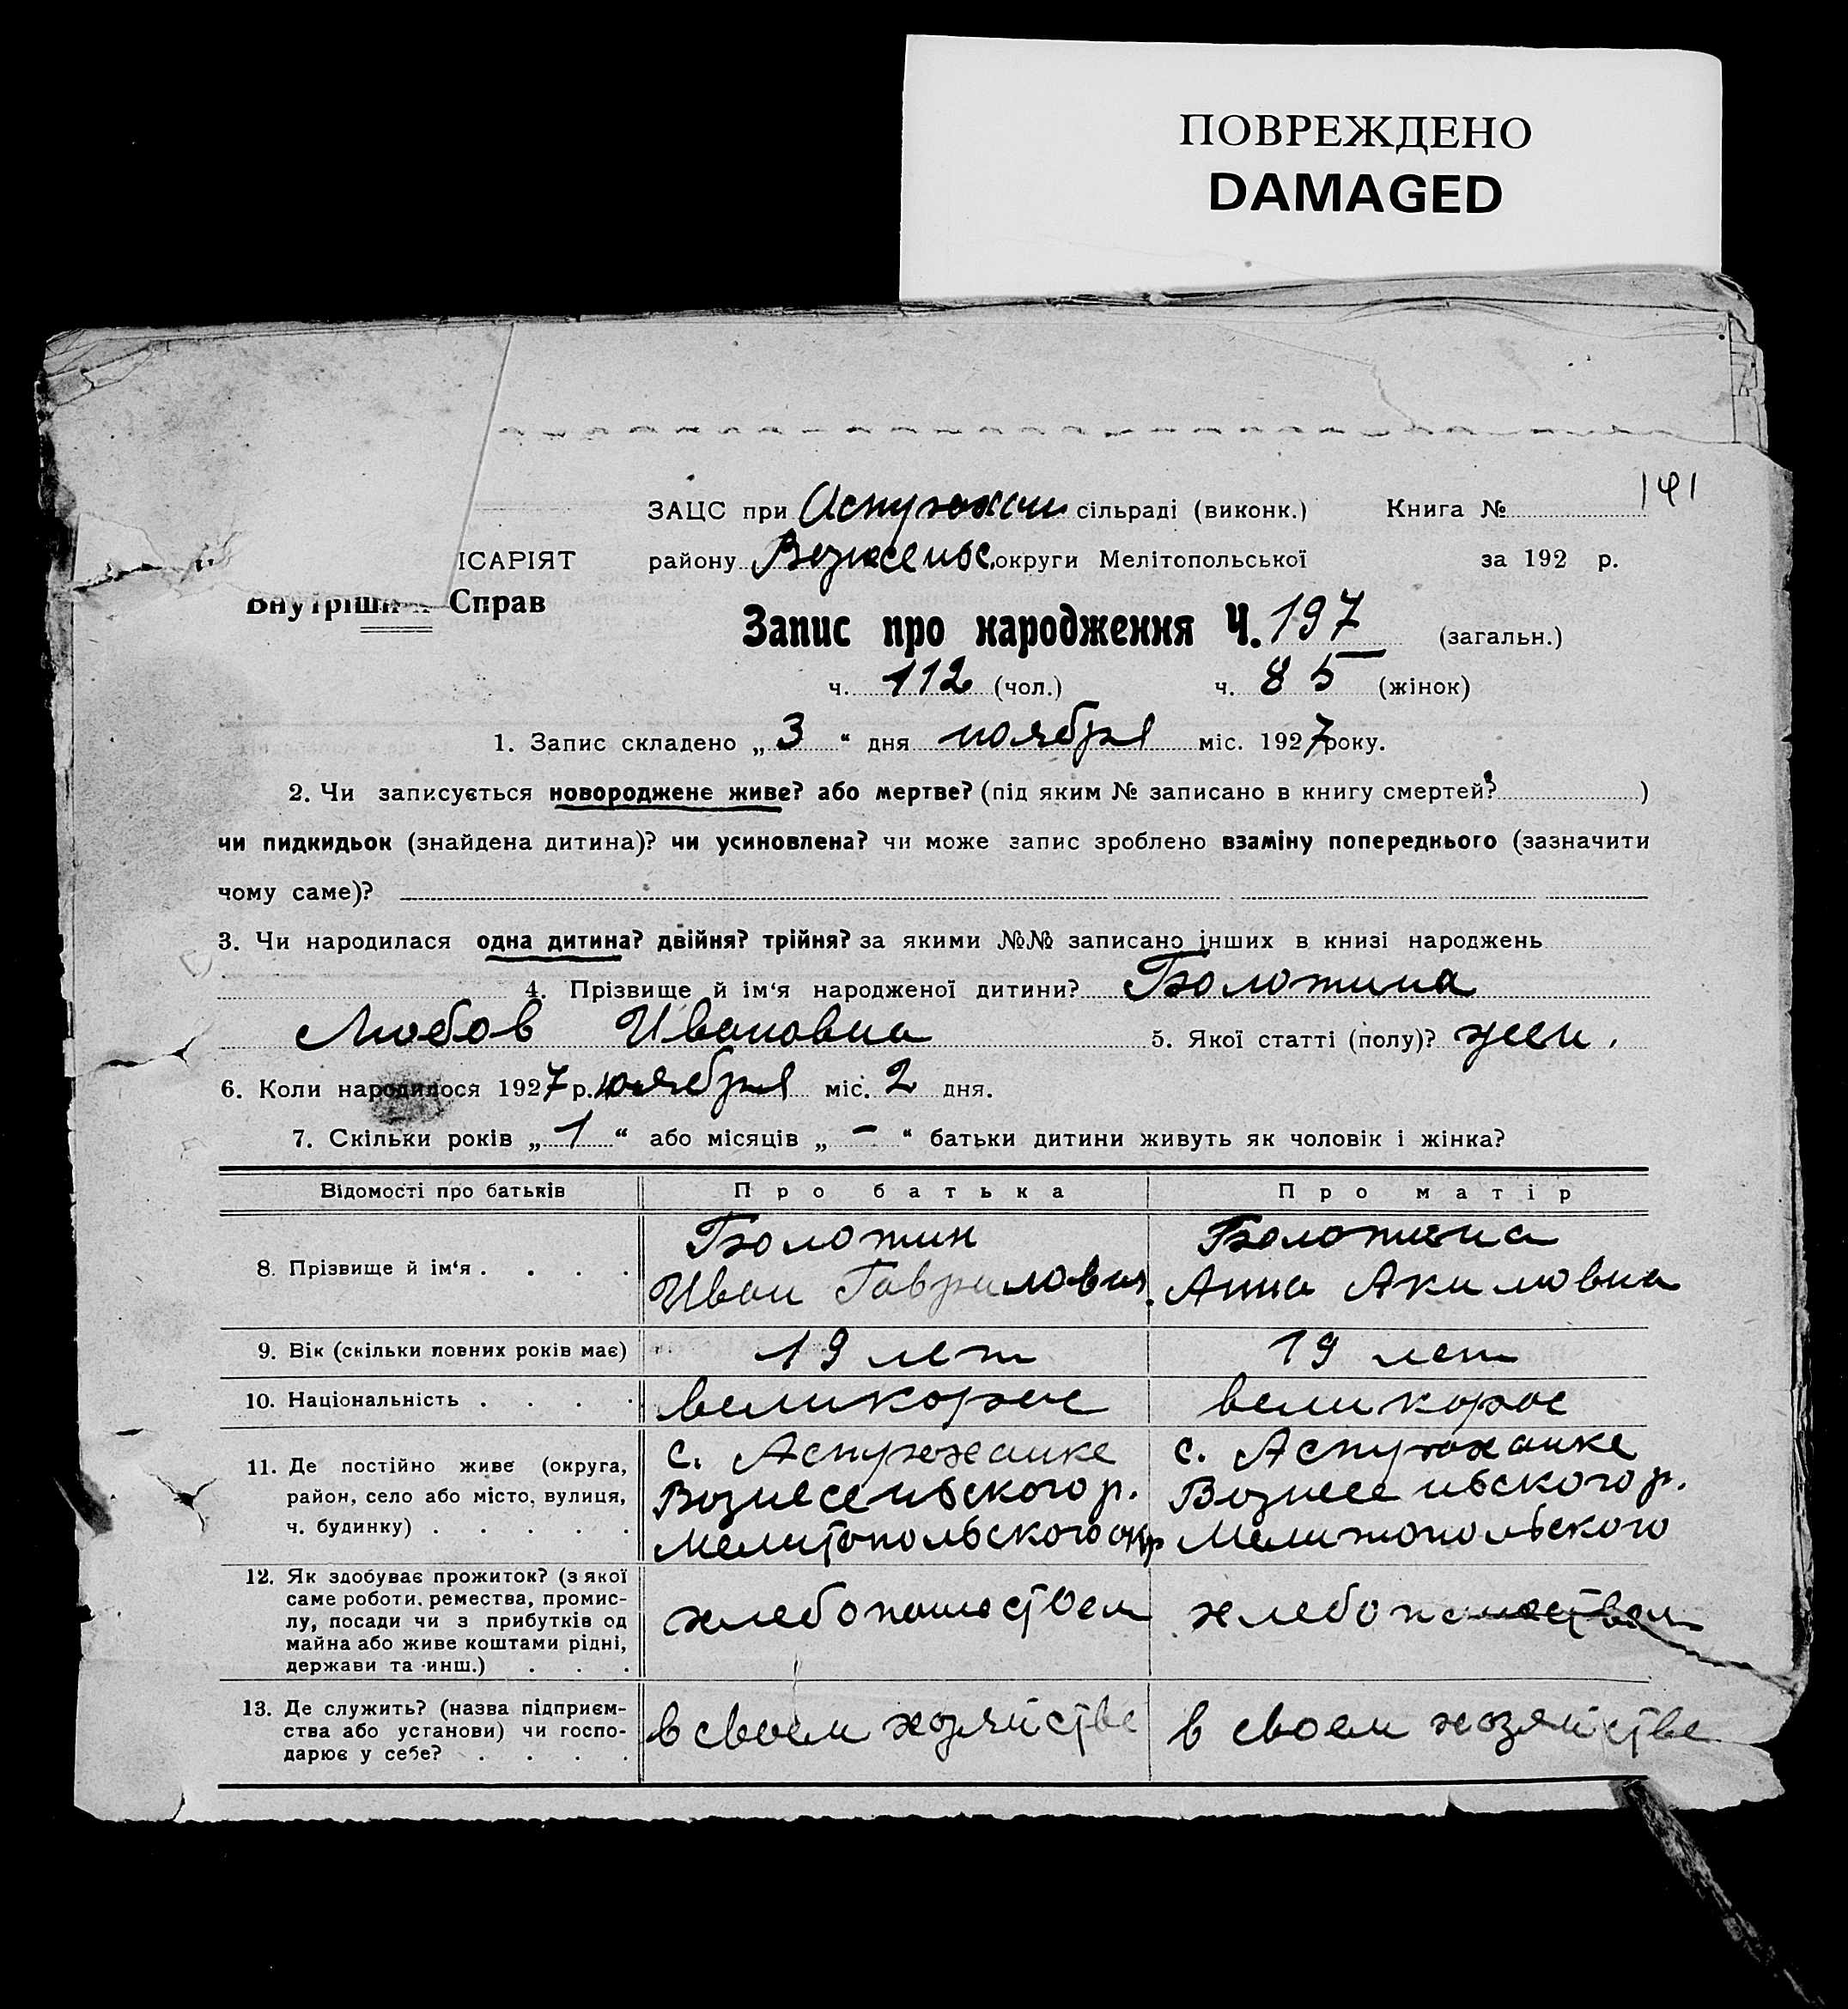 ПОВРЕЖДЕНО
DAMAGED
141
ЗАЦС при сільраді (виконк.) Книга №
ІСАРІЯТ району округи Мелітопольської за 192 р.
Внутрішн Справ
Запис про народження Ч. 197 (загальн.)
ч. 112 (чол.) ч. 85 (жінок)
1. Запис складено „ 3 “ дня ноября міс. 1927 року.
2. Чи записується новороджене живе? або мертве? (під яким № записано в книгу смертей? )
чи пидкидьок (знайдена дитина)? чи усиновлена? чи може запис зроблено взаміну попереднього (зазначити
чому саме)?
3. Чи народилася одна дитина? двійня? трійня? за якими №№ записано інших в книзі народжень
4. Прізвище й ім‘я народженої дитини? Болотина
Любов Ивановна 5. Якої статті (полу)? жен.
6. Коли народилося 1927 р. ноября міс. 2 дня.
7. Скільки років „ 1 “ або місяців „ – “ батьки дитини живуть як чоловік і жінка?
Відомості про батьків Про батька Про матір
8. Прізвище й ім‘я . . . . Болотин Иван Гаврилович. Болотина Анна Акимовна
9. Вік (скільки повних років має) 19 лет 19 лет
10. Національність . . . . великорос великорос
11. Де постійно живе (округа, с. Аструханке с. Аструханке
район, село або місто, вулиця, Вознесеньского р. Вознесеньского р.
ч. будинку) . . . . . Мелитопольского окр Мелитопольского
12. Як здобуває прожиток? (з якої
саме роботи, ремества, промис-
лу, посади чи з прибутків од хлебопашеством хлебопашеством
майна або живе коштами рідні,
держави та инш.) . . .
13. Де служить? (назва підприєм-
ства або установи) чи госпо- в своем хозяйстве в своем хозяйстве
дарює у себе? . . . .